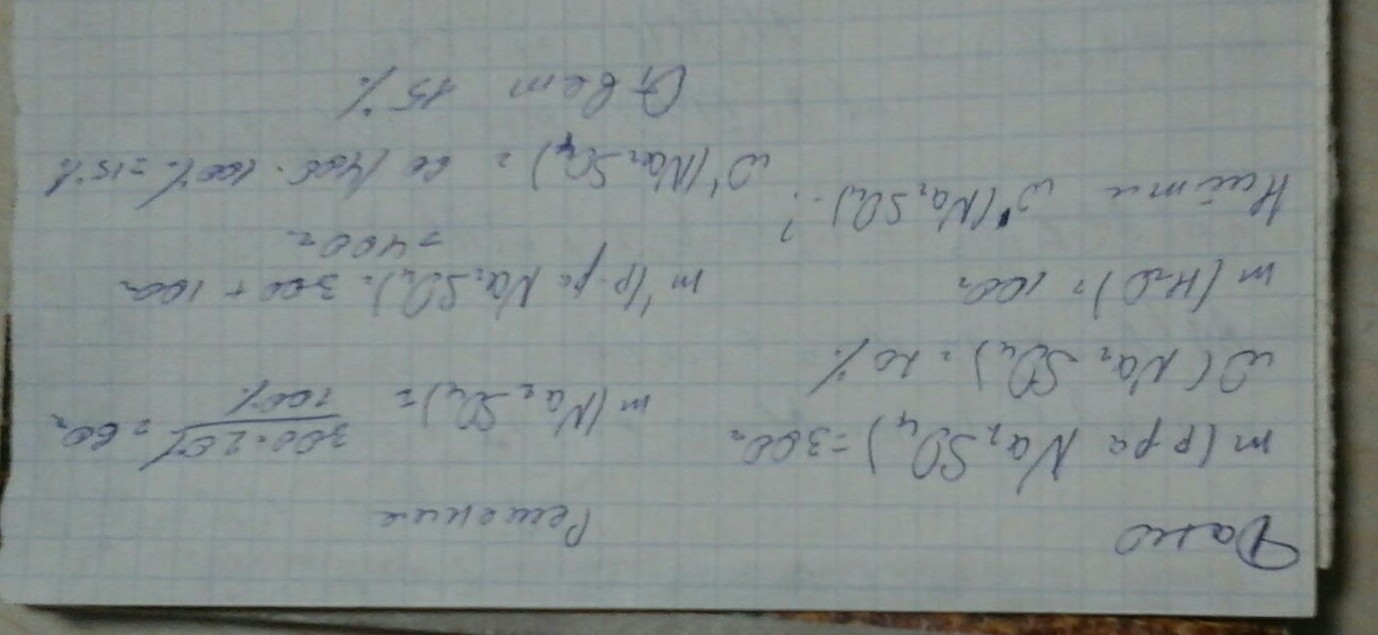 Дано
m(р-ра Na₂SO₄) = 300г
ω(Na₂SO₄) = 20%
m(H₂O) = 100г
Найти ω'(Na₂SO₄)-?
Решение
m(Na₂SO₄) = 300·20% / 100% = 60г
m'(р-ра Na₂SO₄) = 300 + 100
= 400г
ω'(Na₂SO₄) = 60/400·100% = 15%
Ответ 15%